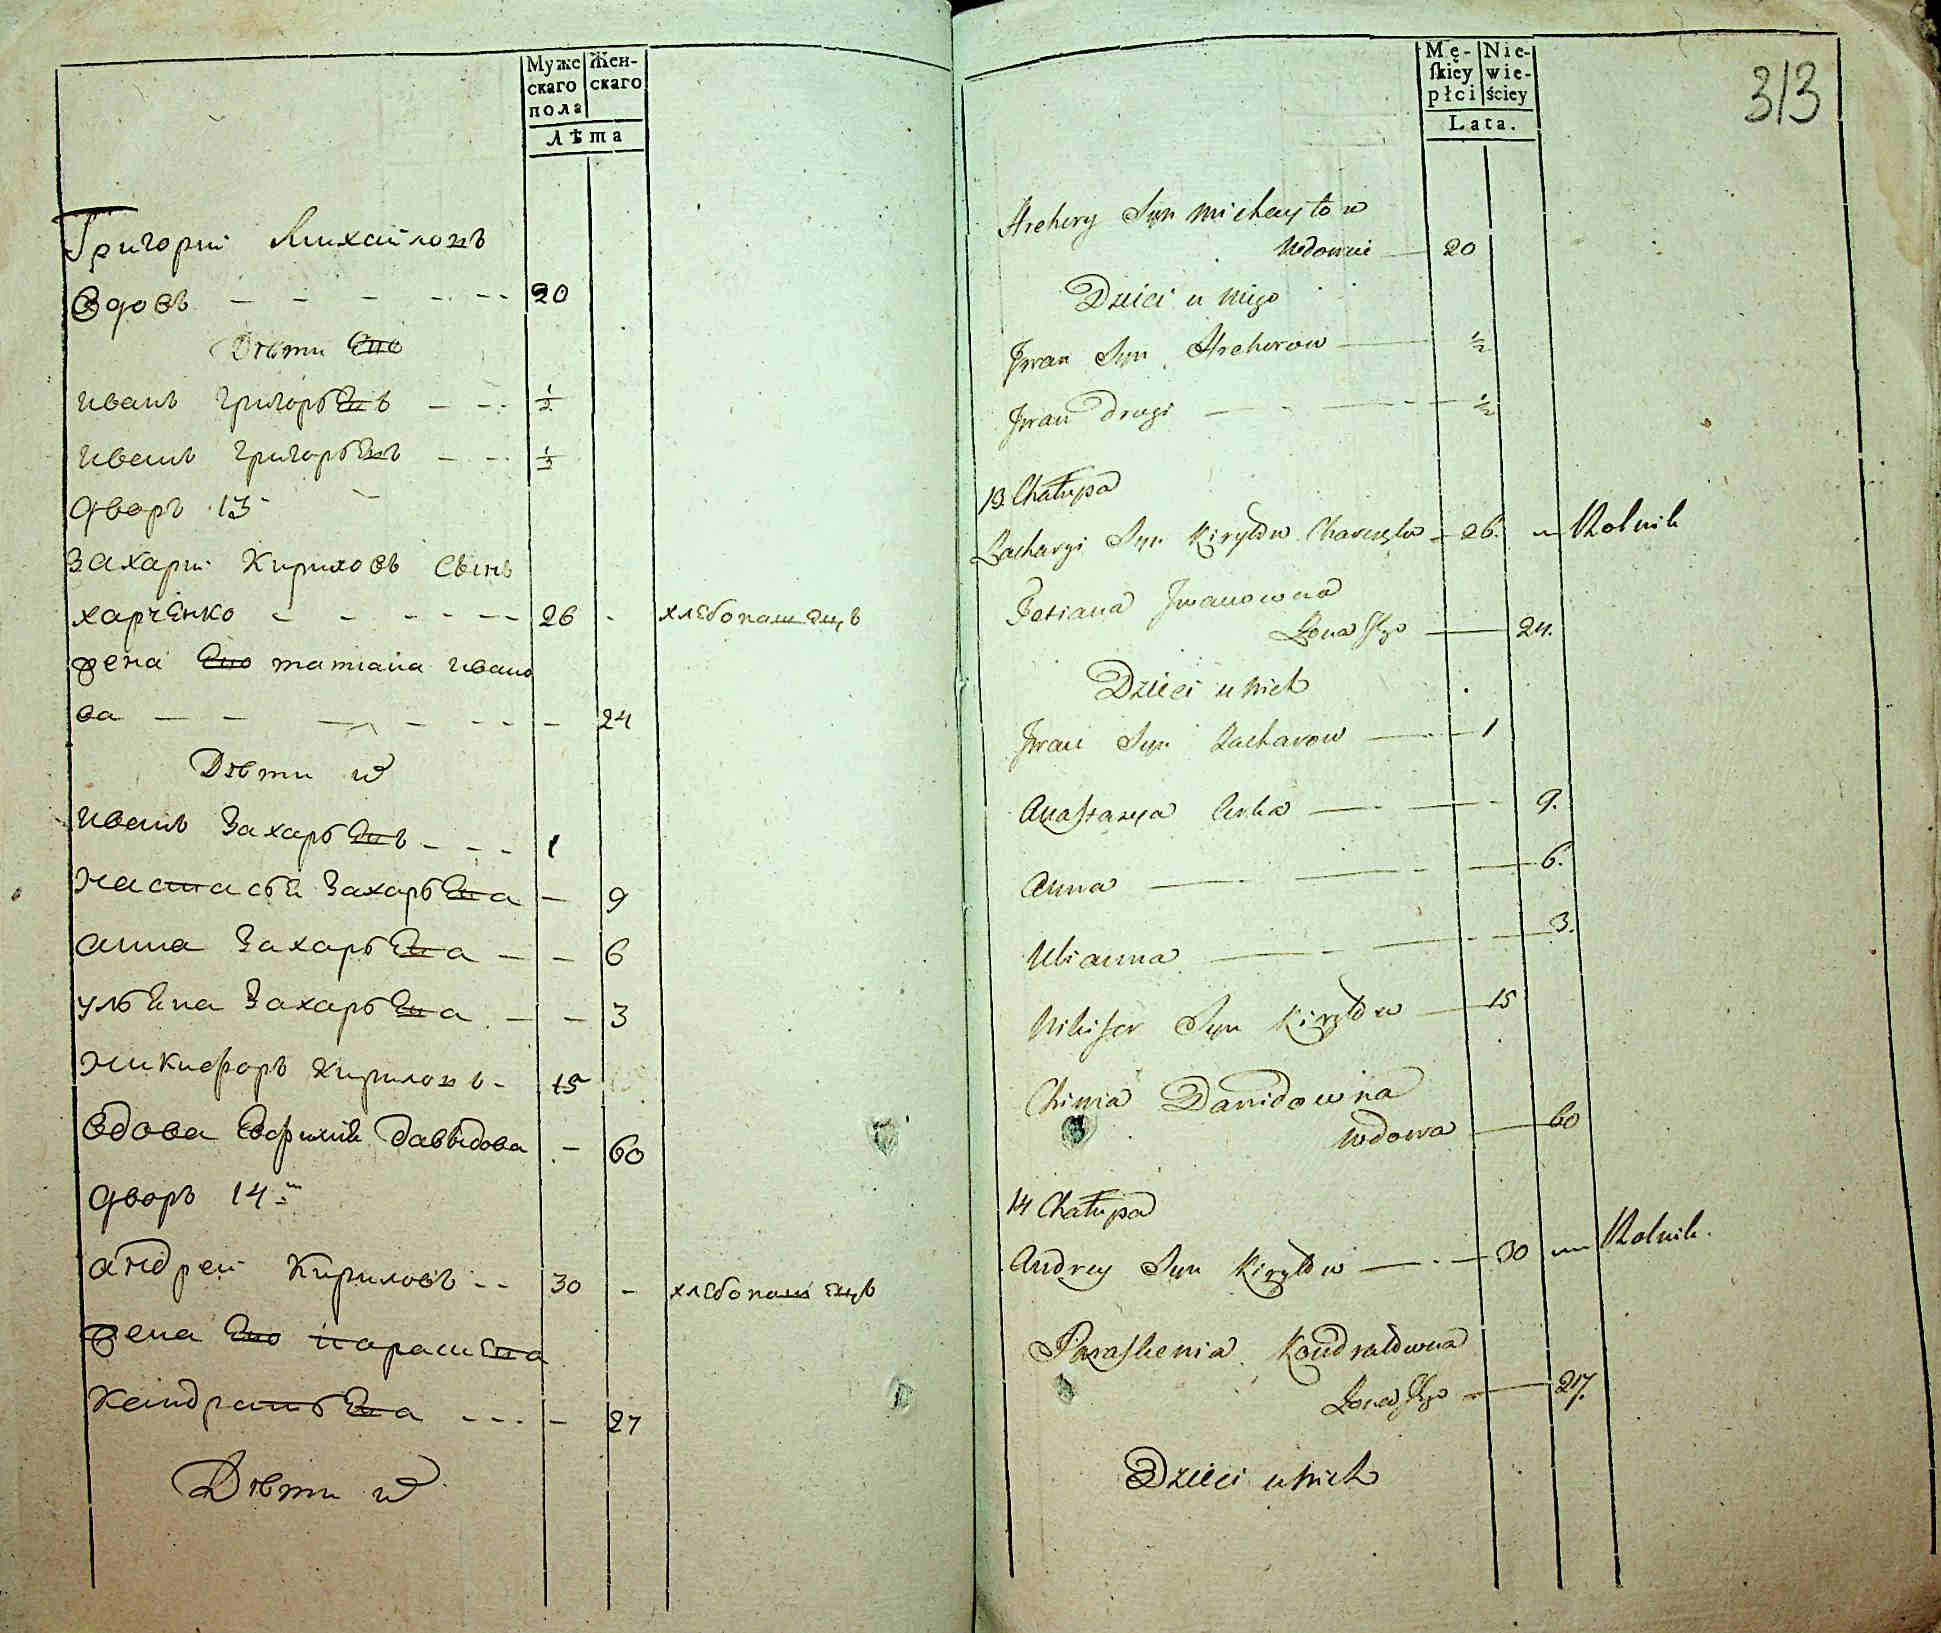 Муже
скаго
пола
Жен-
скаго
лѣта
Григории Михаиловъ
вдовъ - - - - - - 20
Дѣти Его
иванъ григорьевъ - - - 1/2
иванъ григорьевъ - - - 1/2
дворъ 13й
захарии Кириловъ Сынъ
харченко - - - - - - 26 - хлебопашецъ
жена Его татиана ивано
ва - - - - - - - 24
Дѣти ихъ
иванъ захарьевъ - - - 1
настасья захарьева - 9
анна захарьева - - 6
ульяна захарьева - - 3
никифоръ кириловъ - 15
вдова давыдова - 60
дворъ 14й
андреи Кириловъ - - 30 - хлебопашецъ
жена Его
кандратьева - - - - 27
Дѣти ихъ
Mę-
skiey
płci
Nie-
wie-
ściey
Lata.
313
Hrehory Syn Michayłow
Wdowiec — 20
Dzieci u niego
Jwan Syn Hrehorow — 1/2
Jwan drugi — — 1/2
13 Chałupa
Zacharyi Syn Kiryłow — 26. — Rolnik
Tetiana Jwanowna
Żona Jego — 24.
Dzieci u nich
Jwan Syn Zacharow — 1
Anastazya Corka — 9.
Anna — — 6.
Ulianna — — 3.
Nikifor Syn Kiryłow — 15
Chimia Davidowna
wdowa — 60
14 Chałupa
Andrey Syn Kiryłow — 30 — Rolnik.
Paraskewia Kondratowna
Żona Jego — 27.
Dzieci u nich